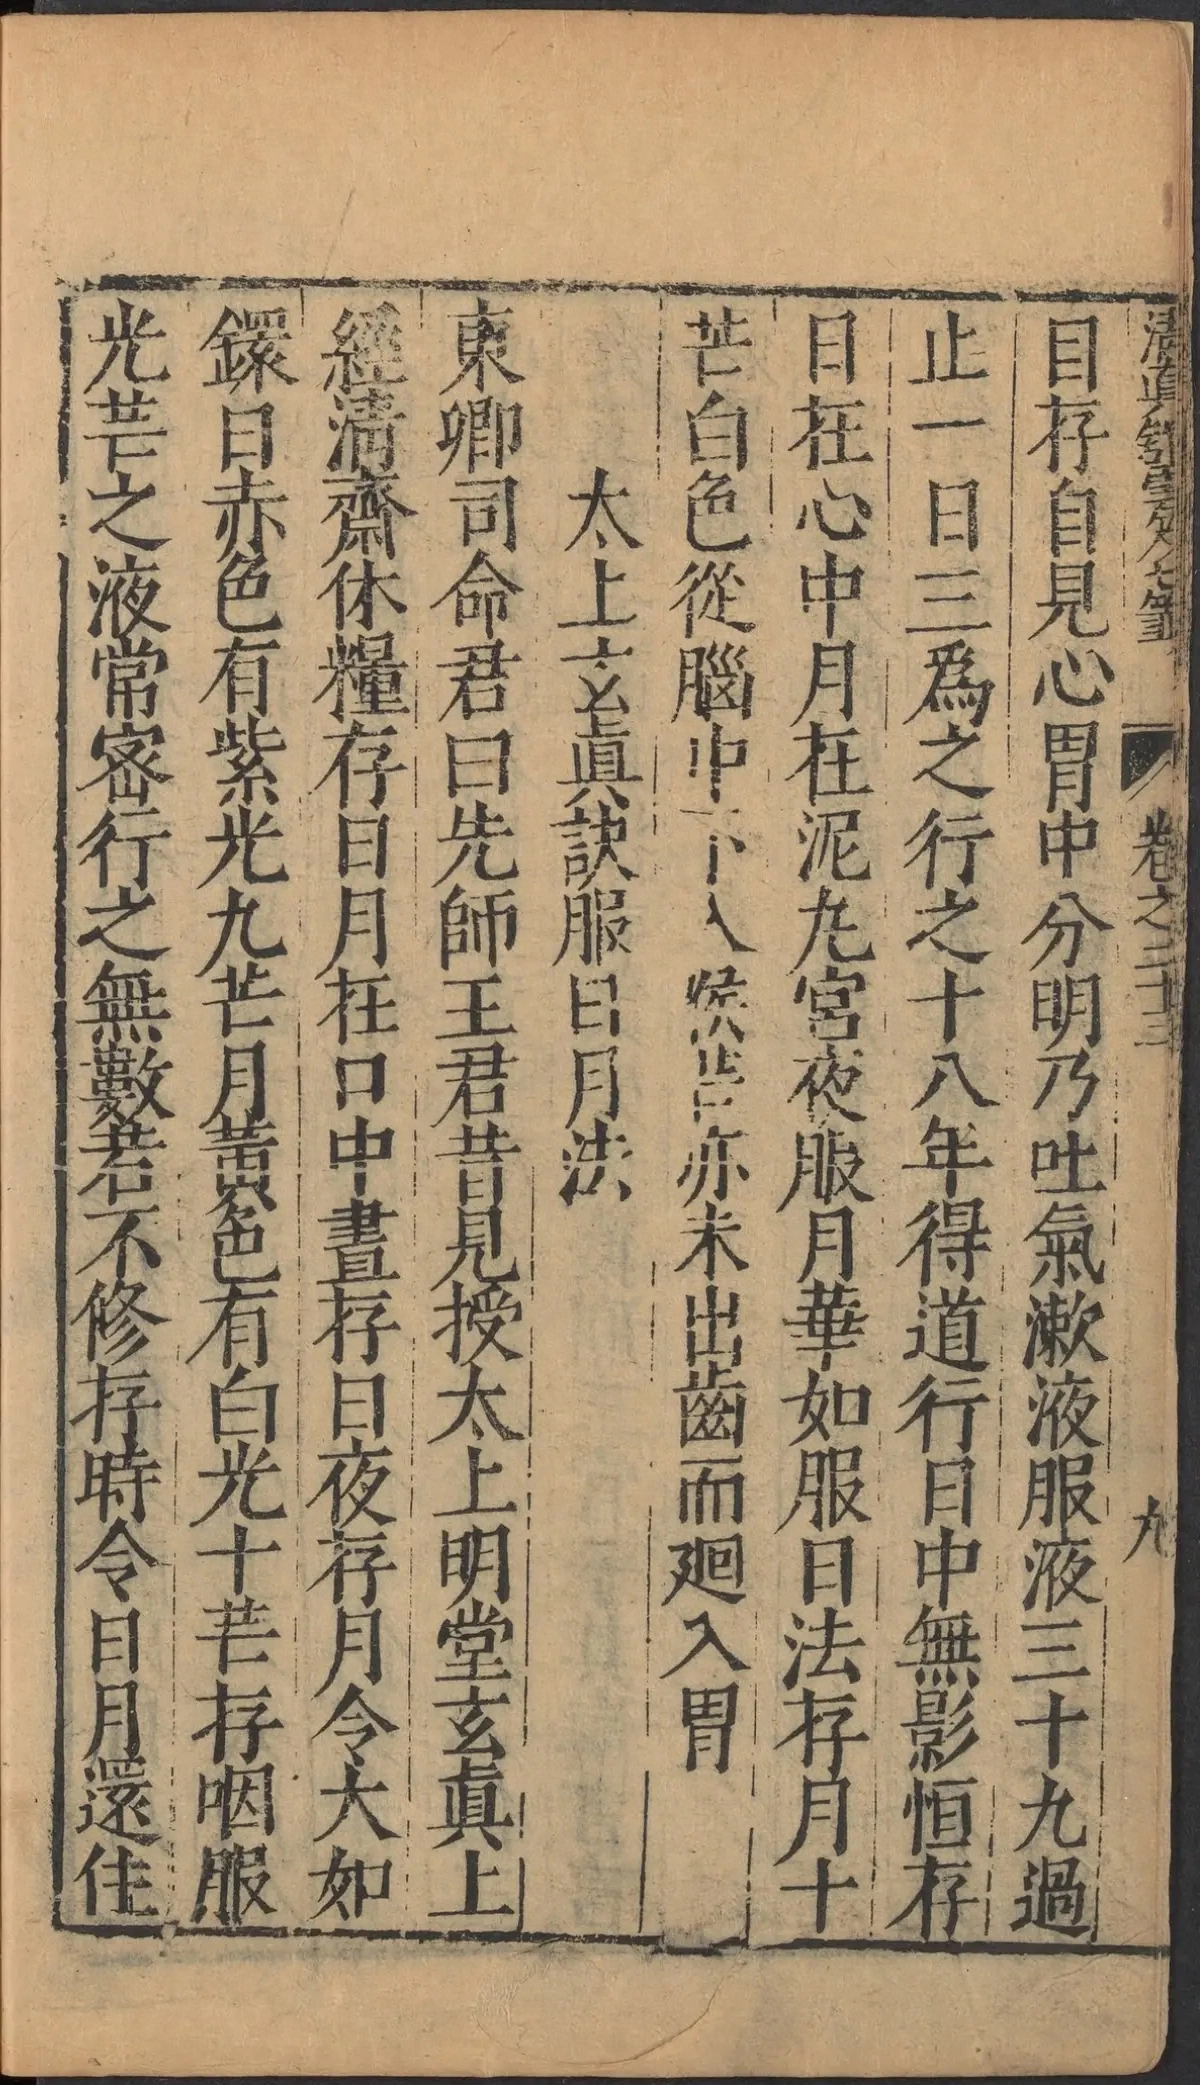 清眞館雲笈七籤 卷之二十三 九
目存自見心胃中分明乃吐氣漱液服液三十九過
止一日三爲之行之十八年得道行日中無影恒存
日在心中月在泥丸宮夜服月華如服日法存月十
芒白色從腦中下入喉芒亦未出齒而廻入胃
太上玄眞訣服日月法
東卿司命君曰先師王君昔見授太上明堂玄眞上
經清齋休糧存日月在口中晝存日夜存月令大如
鐶日赤色有紫光九芒月黃色有白光十芒存咽服
光芒之液常密行之無數若不修存時令日月還住